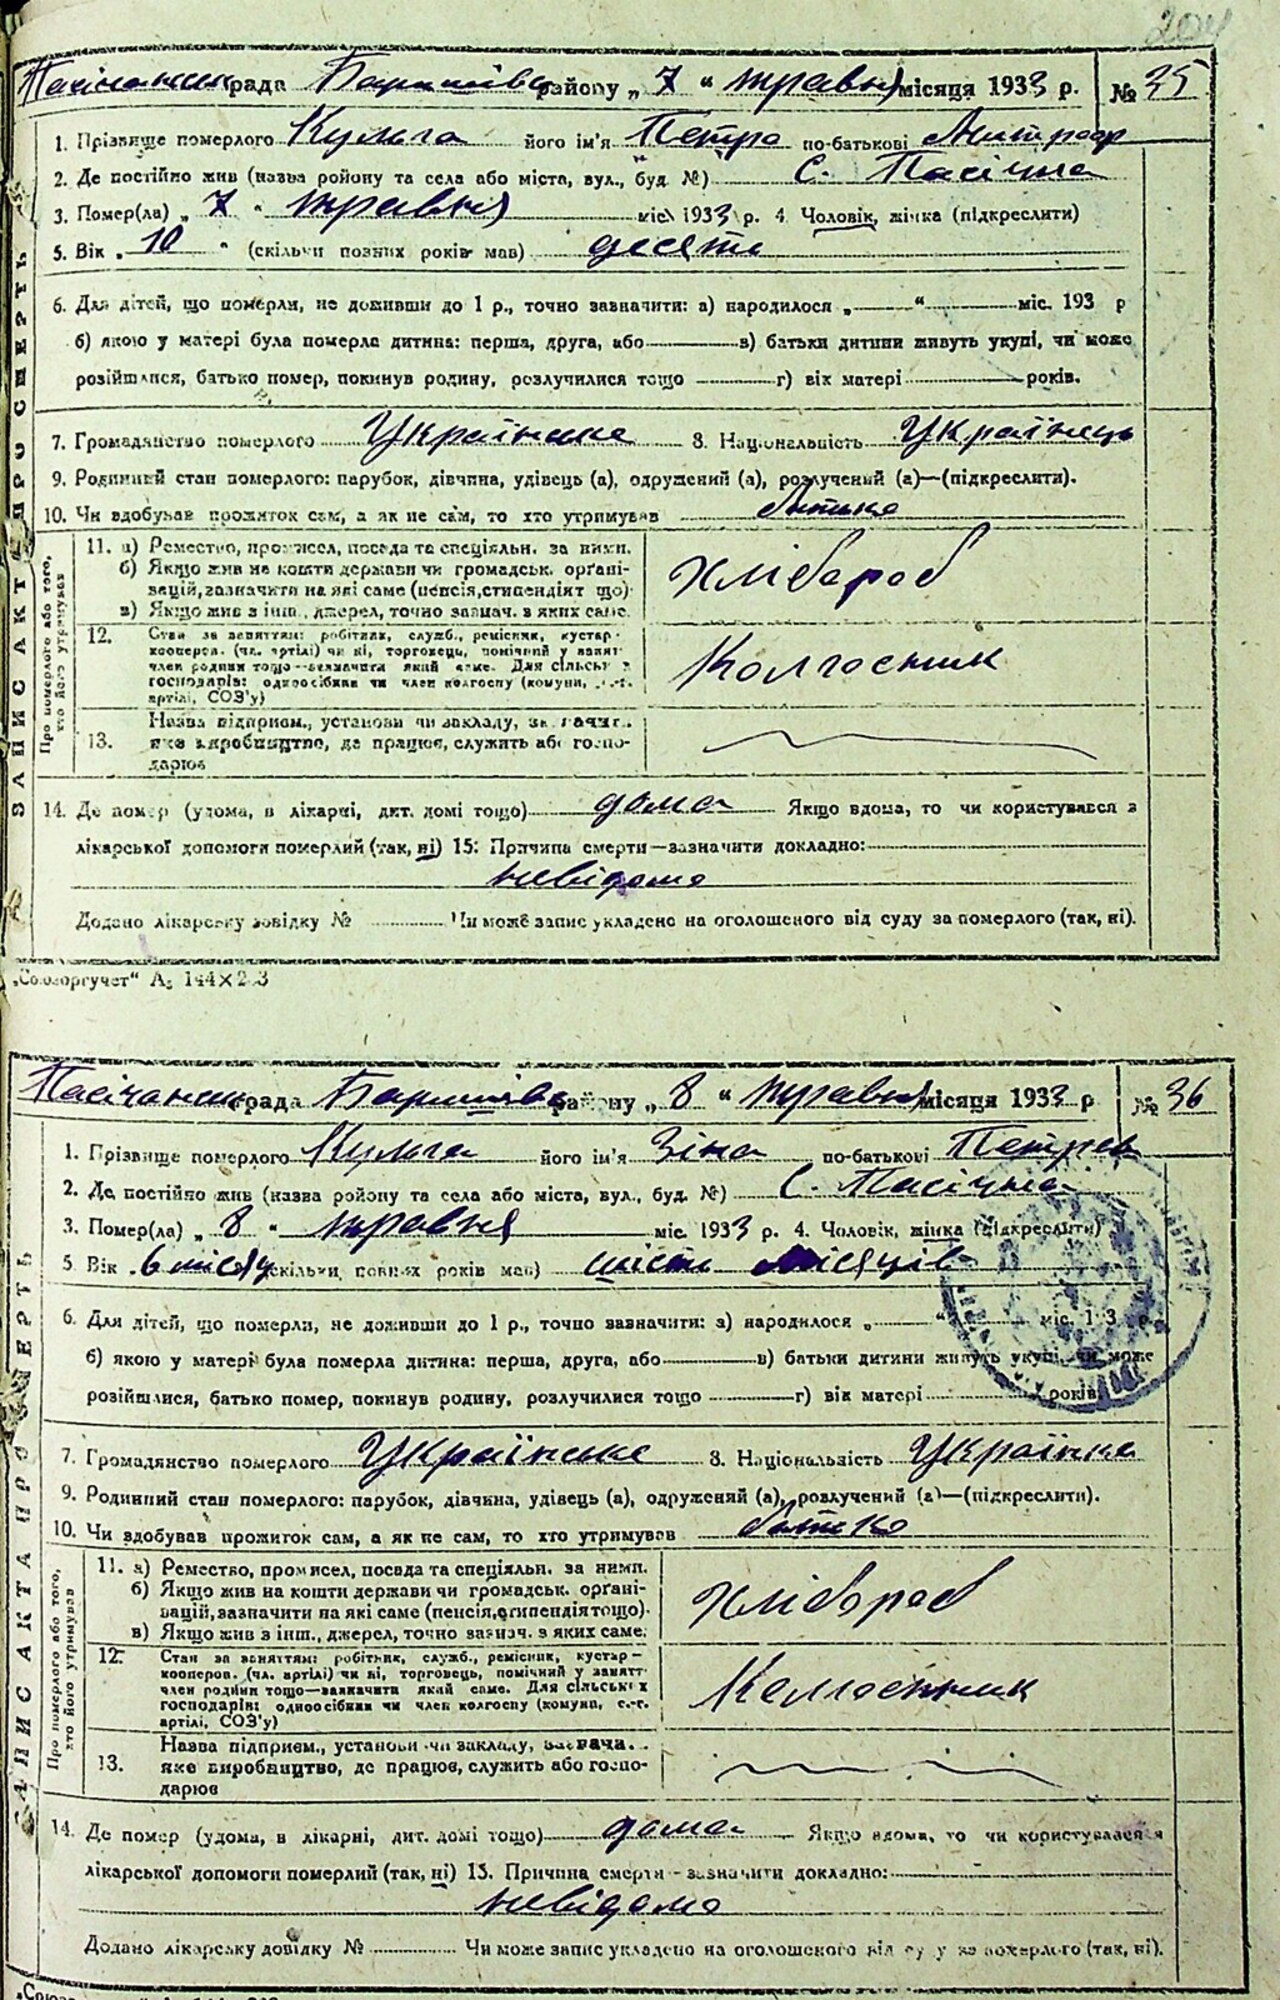 204
Пасічанська рада Баришівс району „ 7 “ травня місяця 1933 р. № 35
1. Прізвище померлого Кульга його ім'я Петро по-батькові Митроф
2. Де постійно жив (назва району та села або міста, вул., буд. №) с. Пасічна
3. Помер(ла) „ 7 “ травня міс. 1933 р. 4. Чоловік, жінка (підкреслити)
5. Вік „ 10 “ (скільки повних років мав) десять
6. Для дітей, що померли, не доживши до 1 р., точно зазначити: а) народилося „ “ міс. 193 р
б) якою у матері була померла дитина: перша, друга, або в) батьки дитини живуть укупі, чи може
розійшлися, батько помер, покинув родину, розлучилися тощо г) вік матері років.
7. Громадянство померлого Українське 8. Національність Українець
9. Родинний стан померлого: парубок, дівчина, удівець (а), одружений (а), розлучений (а)—(підкреслити).
10. Чи здобував прожиток сам, а як не сам, то хто утримував батько
ЗАПИС АКТА ПРО СМЕРТЬ
Про померлого або того, хто його утримував
11. а) Ремество, промисел, посада та спеціяльн. за ними.
б) Якщо жив на кошти держави чи громадськ. орґані-
зацій, зазначити на які саме (пенсія, стипендіят що)
в) Якщо жив з інш., джерел, точно зазнач. з яких саме.
хлібороб
12. Стан за заняттям: робітник, служб., ремісник, кустар-
кооперов. (чл. артілі) чи ні, торговець, помічний у занят
член родини тощо—зазначити який саме. Для сільськ
господарів: одноосібник чи член колгоспу (комуни, с.-г.
артілі, СОЗ'у)
Колгоспник
13. Назва підприєм., установи чи закладу, зазнач.
яке виробництво, де працює, служить або госпо-
дарює
14. Де помер (удома, в лікарні, дит. домі тощо) дома Якщо вдома, то чи користувався з
лікарської допомоги померлий (так, ні) 15. Причина смерти—зазначити докладно:
невідома
Додано лікарську довідку № Чи може запис укладено на оголошеного від суду за померлого (так, ні).
„Союзоргучет“ А5 144×203
Пасічанська рада Баришівс району „ 8 “ травня місяця 1933 р № 36
1. Прізвище померлого Кульга його ім'я Зіна по-батькові Петров
2. Де постійно жив (назва району та села або міста, вул., буд. №) с. Пасічна
3. Помер(ла) „ 8 “ травня міс. 1933 р. 4. Чоловік, жінка (підкреслити)
5. Вік „ 6 місяц скільки повних років мав) шість місяців
6. Для дітей, що померли, не доживши до 1 р., точно зазначити: а) народилося „ “ міс. 193 р
б) якою у матері була померла дитина: перша, друга, або в) батьки дитини живуть укупі, чи може
розійшлися, батько помер, покинув родину, розлучилися тощо г) вік матері років
7. Громадянство померлого Українське 8. Національність Українка
9. Родинний стан померлого: парубок, дівчина, удівець (а), одружений (а), розлучений (а)—(підкреслити).
10. Чи здобував прожиток сам, а як не сам, то хто утримував батько
ЗАПИС АКТА ПРО СМЕРТЬ
Про померлого або того, хто його утримував
11. а) Ремество, промисел, посада та спеціяльн. за ними.
б) Якщо жив на кошти держави чи громадськ. орґані-
зацій, зазначити на які саме (пенсія, стипендія тощо).
в) Якщо жив з інш., джерел, точно зазнач. з яких саме.
хлібороб
12. Стан за заняттям: робітник, служб., ремісник, кустар-
кооперов. (чл. артілі) чи ні, торговець, помічний у занятт
член родини тощо—зазначити який саме. Для сільських
господарів: одноосібник чи член колгоспу (комуни, с.-г.
артілі, СОЗ'у)
Колгоспник
13. Назва підприєм., установи чи закладу, зазнача.
яке виробництво, де працює, служить або госпо-
дарює
14. Де помер (удома, в лікарні, дит. домі тощо) дома Якщо вдома, то чи користувався з
лікарської допомоги померлий (так, ні) 15. Причина смерти—зазначити докладно:
невідома
Додано лікарську довідку № Чи може запис укладено на оголошеного від суду за померлого (так, ні).